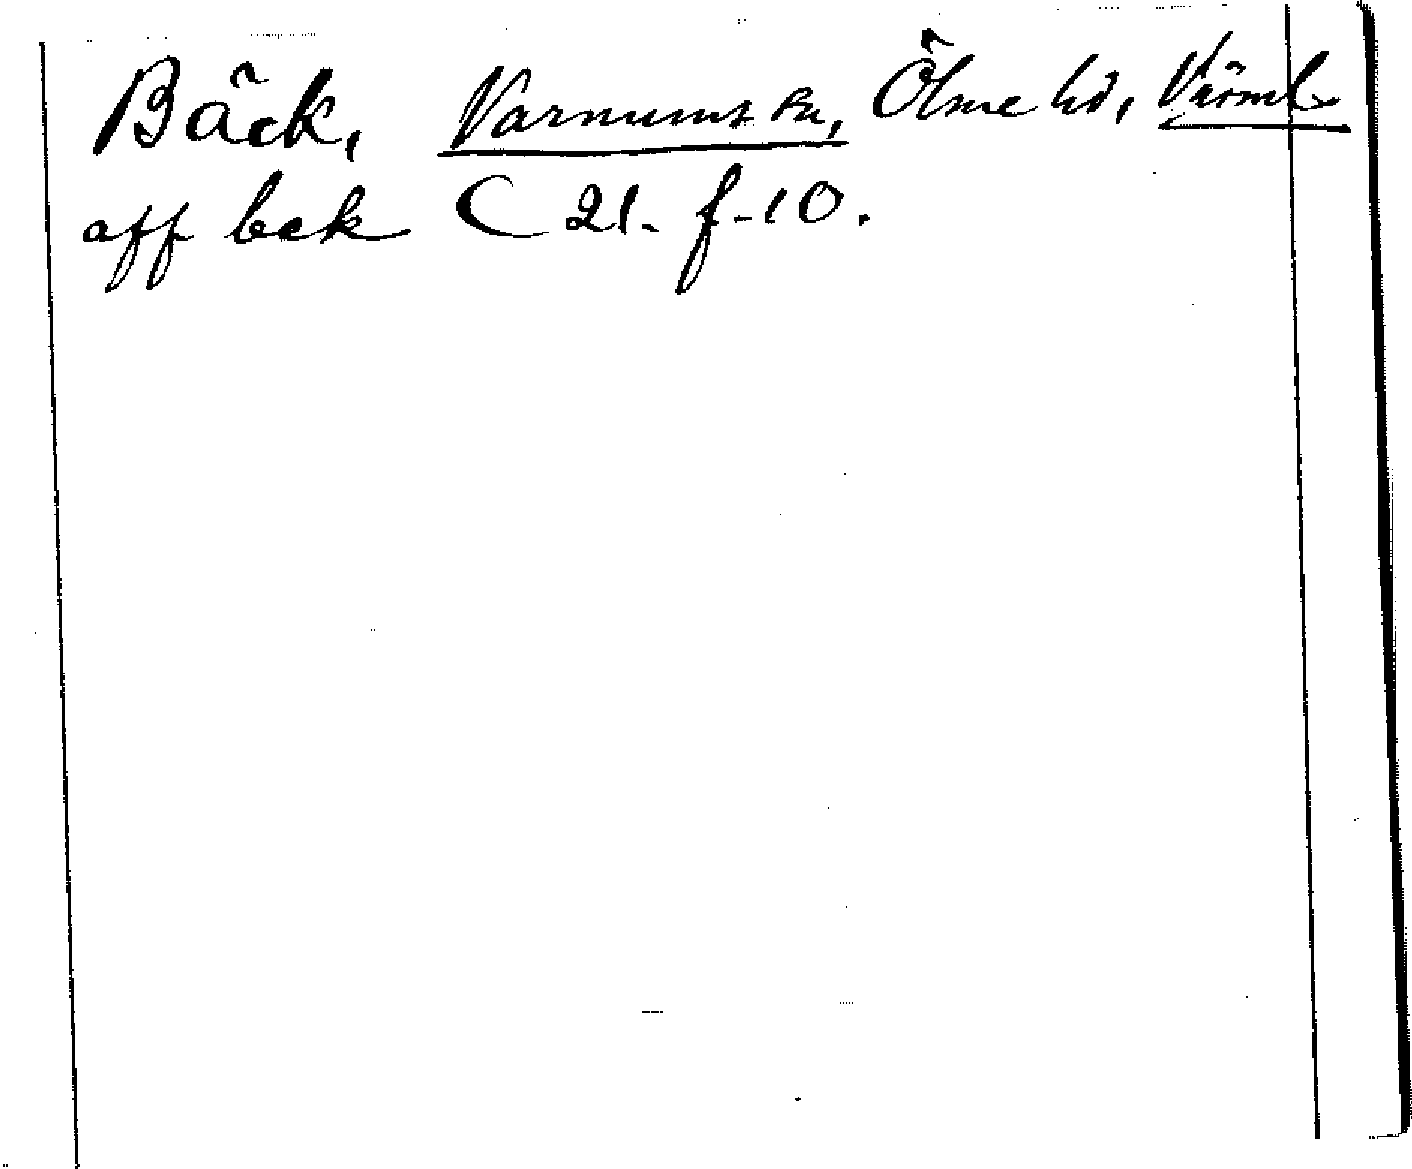 Bäck, Varnums sn, Ölme hd, Värml.
aff bek C 21. f. 10.